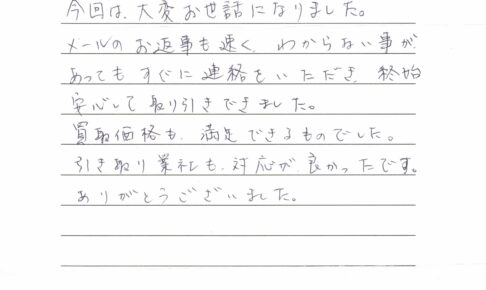 今回は、大変お世話になりました。
メールのお返事も速く、わからない事が
あってもすぐに連絡をいただき、終始
安心して取り引きできました。
買取価格も、満足できるものでした。
引き取り業社も、対応が良かったです。
ありがとうございました。